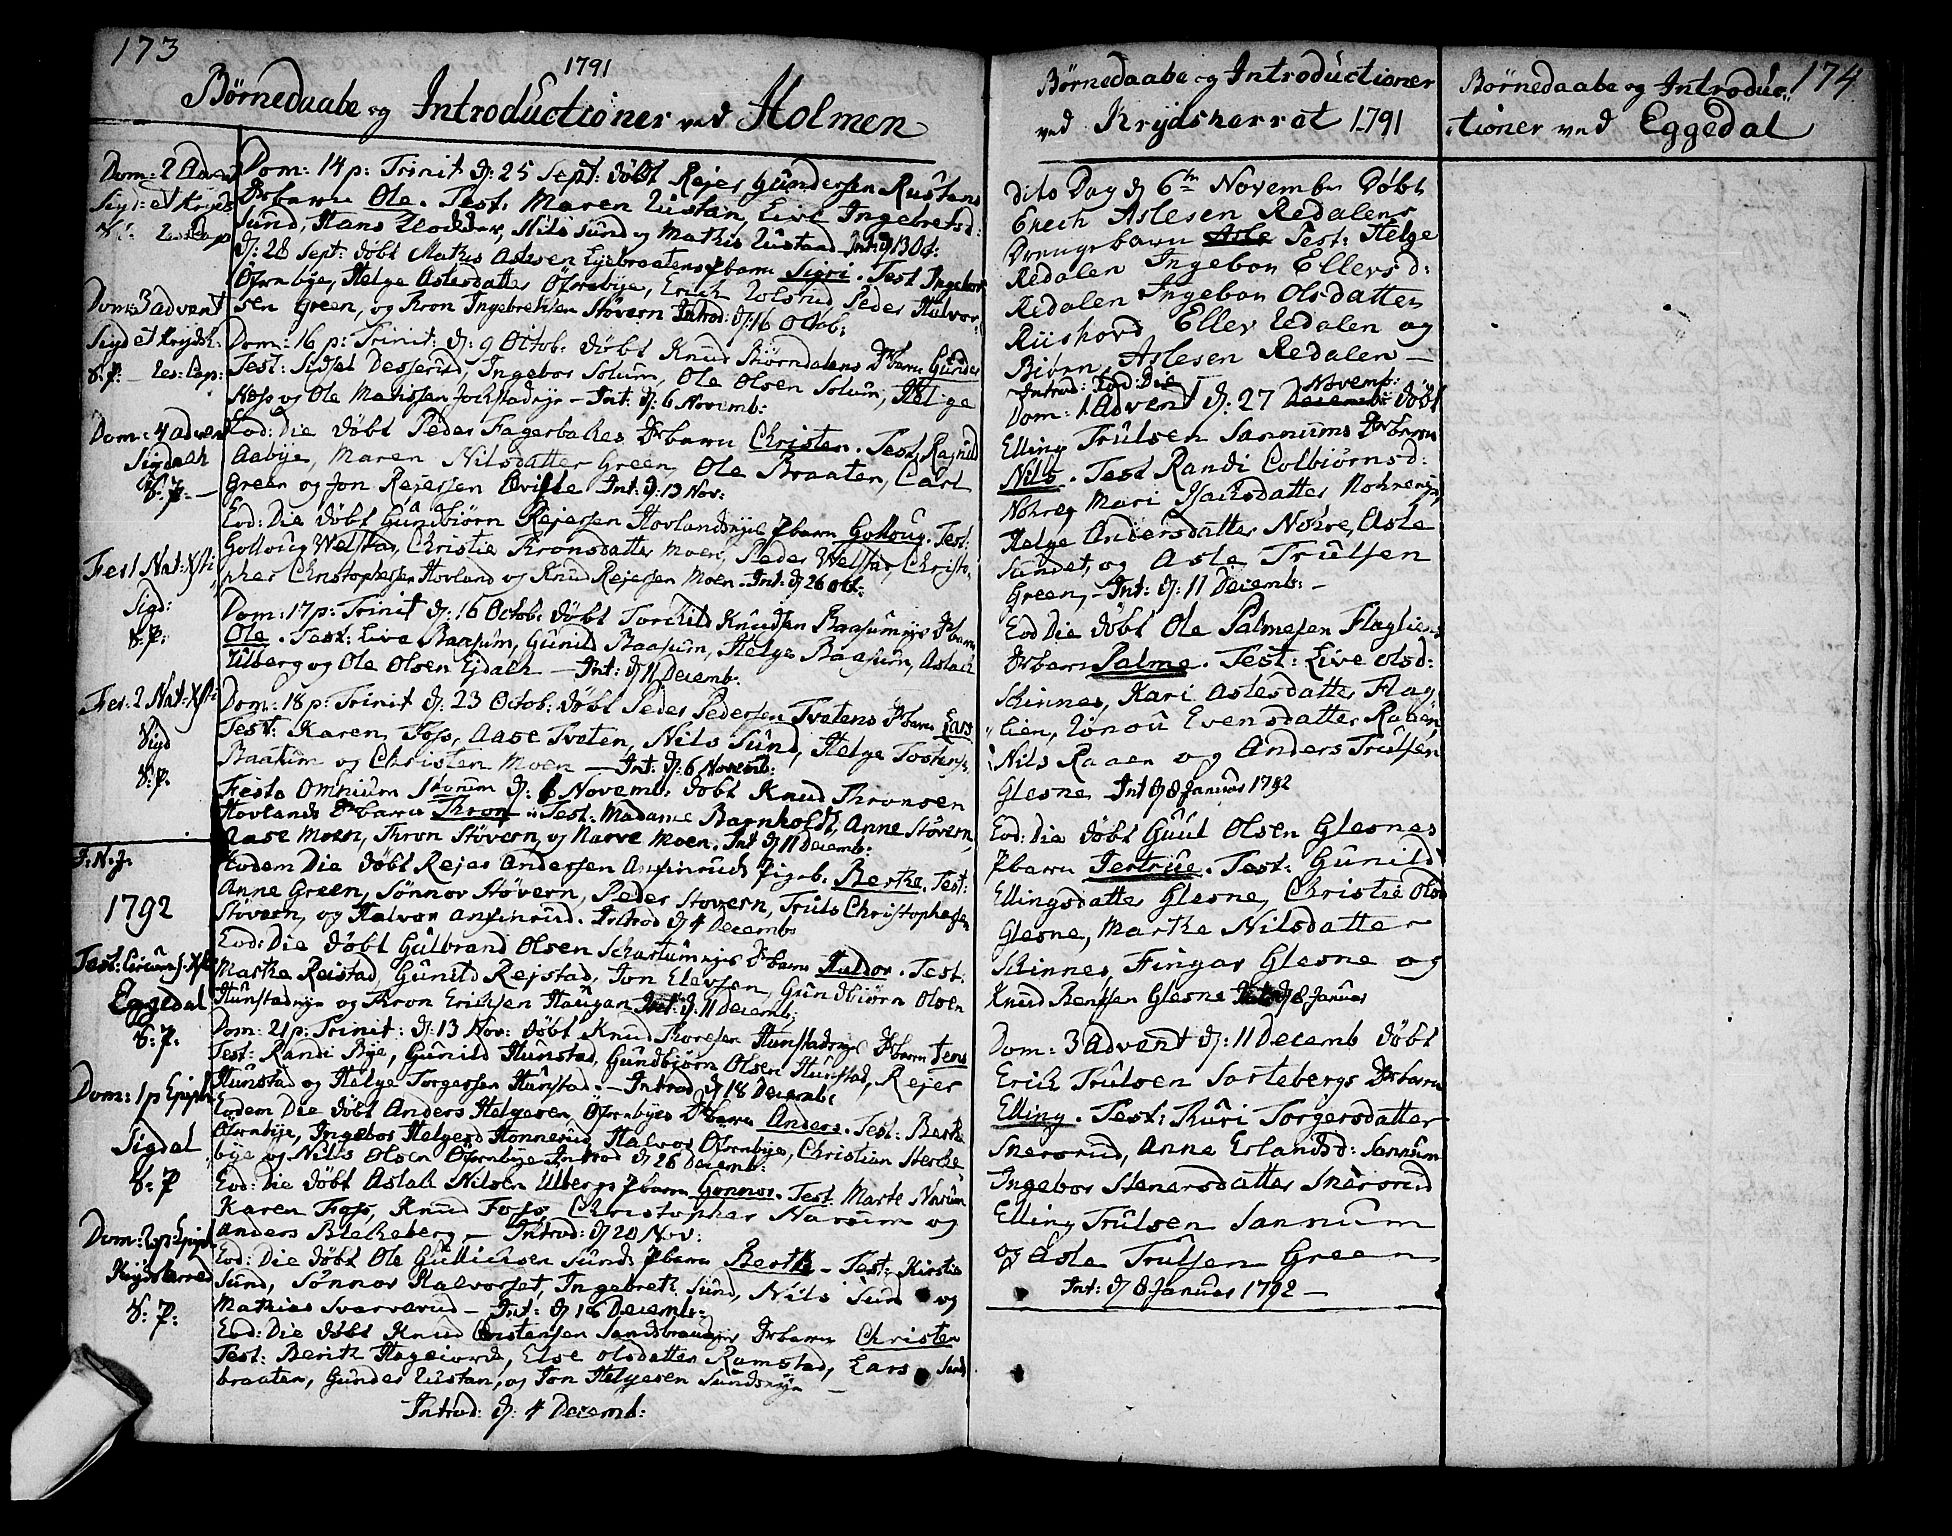 173
1791
Børnedaabe og Introductioner ved Holmen
Dom: 2 Advent
Sigd: et Kryds
Dom: 3 advent
Sigd et Krydsh:
V: P: — Les: Cap:
Dom: 4 advent
Sigdals
V: P: —
Fest Nat: Xsti
Sigd:
V: P:
Fer: 2 Nat: Xsti
Sigd
V: P.
I: N: J:
1792
Fest: Circums: Xsti
Eggedal
V: P.
Dom: 1 p Epiph:
Sigdal
V: P
Dom: 2 p Epiph
Krydsherred
V: P:
Dom: 14 p: Trinit d: 25 Sept: døbt Rejer Gundersen Rustans
Drbarn Ole. Test: Maren Rustan, Live Ingebretsd:
Sund, Hans Klodder, Nils Sund og Mathis Rustand Int: d 13 Oct:
d: 28 Sept: døbt Mathis Aslesen Eyebraatens Pbarn Sigri. Test Ingebor
Ofernbye, Helge Aslesdatter Ofernbye, Erich Kolsrud, Peder Halvor-
sen Green, og Thron Ingebretsen Støvern Introd: d: 16 Octob:
Dom: 16 p: Trinit: d: 9 Octob: døbt Knud Biørndalens Drbarn Gunder
Test: Sidsel Desserud, Ingebor Solum, Ole Olsen Solum, Helge
Ness og Ole Mathissen — Int: d: 6 Novemb:
Eod: Die døbt Peder Fagerbakes Drbarn Christen. Test: Ragnild
Aabye, Maren Nilsdatter Green, Ole Braaten, Carl
Green og Jon Rejersen Int: d: 13 Nov:
Eod: Die døbt Gundbiørn Rejersen Hovlandseyes Pbarn Golloug. Test:
Golloug Welstad, Christie Thronsdatter Moen, Peder Welstad, Christo-
pher Christophersen Hovland og Knud Rejersen Moen. Int: d 26 Oct:
Dom: 17 p: Trinit d: 16 Octob: døbt Torchild Knudsen Drbarn
Ole. Test: Live Baasum, Gunild Baasum, Helge Baasum, Aslach
Ulberg og Ole Olsen Ejdalh — Int: d 11 Decemb:
Dom: 18 p: Trinit d: 23 Octob: døbt Peder Pedersen Tvetens Drbarn Lars
Test: Karen Foss, Aase Tveten, Nils Sund, Helge Tostens:
Braatum og Christen Moen — Int: d: 6 Novemb:
Festo Omnium Storum d: 6 Novemb: døbt Knud Thronsen
Hovlands Drbarn Thron Test: Madame Barnholdt, Anne Støvern,
Aase Moen, Thron Støvern, og Narve Moen. Int d 11 Decemb:
Eodem Die døbt Rejer Andersen Ansinruds Pigeb: Berthe. Test:
Anne Green, Sønnov Støvern, Peder Støvern, Truls Christophersen
Støvern, og Halvor Ansinrud. Introd d 4 Decemb
Eod: Die døbt Gulbrand Olsen Drbarn Haldor. Test:
Marthe Rejstad, Gunild Rejstad, Jon Elevsen, Gundbiørn Olsen
Hunstadeye og Thron Erichsen Haugan Int: d: 11 Decemb:
Dom: 21 p: Trinit: d: 13 Nov: døbt Knud Thoresen Hunstadeyes Drbarn Jens
Test: Randi Bye, Gunild Hunstad, Gundbiørn Olsen Hunstad, Rejer
Hunstad og Helge Torgersen Hunstad. — Introd d 18 Decemb:
Eodem Die døbt Anders Helgesen Ofernbyes Drbarn Anders. Test: Berthe
Ofernbye, Ingebor Helgesd Honnerud, Halvor Ofernbye, Christian Sterke-
bye og Nils Olsen Ofernbye Introd d 26 Decemb:
Eod: Die døbt Aslak Nilsen Ulbergs Pbarn Gonnor. Test Marte Narum
Karen Foss, Knud Foss, Christopher Narum og
Anders Blekeberg — Introd: d 20 Nov:
Eod: Die døbt Ole Gullichsen Sunds Pbarn Berthe — Test: Kirstie
Sund, Sønnov Halvorset, Ingebreth Sund, Nils Sund og
Mathias Svarverud — Int: d 18 Decemb:
Eod: Die døbt Knud Christensen Sandsbraaeyes Drbarn Christen
Test: Berith Hageiorde, Else Olsdatter Ramstad, Lars Sands
braaten, Gunder Rustan, og Jon Helgesen Sundseye —
Introd: d: 4 Decemb:
Børnedaabe og Introductioner
ved Krydsherret 1791
dito Dag d 6te November døbt
Erich Aslesen Redalens
Drengebarn Asle Test: Helge
Redalen Ingebor Ellersd:
Redalen Ingebor Olsdatter
Riishovd, Eller Redalen og
Biørn Aslesen Redalen —
Introd: Eod: Die
Novemb:
Dom: 1 Advent d: 27 Decemb: døbt
Elling Trulsen Sannums Drbarn
Nils. Test Randi Colbiørnsd:
Nohreg Mari Isachsdatter Nohreeye
Helge Andersdatter Nohre, Asle
Sundet, og Asle Trulsen
Green, — Int: d: 11 Decemb: —
Eod Die døbt Ole Palmesen Flagliens
Drbarn Palme. Test: Live Olsd:
Skinnes, Kari Aslesdatter Flag
lien, Ronou Evensdatter Raaen,
Nils Raaen og Anders Trulsen
Glesne Int d 8 Januar 1792
Eod: Die døbt Guul Olsen Glesnes
Pbarn Jertrue. Test: Gunild
Ellingsdatter Glesne, Christie Olsd
Glesne, Marthe Nilsdatter
Skinnes, Fingar Glesne og
Knud Bentsen Glesne Int: d 8 Januar
Dom: 3 Advent d: 11 Decemb døbt
Erich Trulsen Sortebergs Drbarn
Elling. Test: Thuri Torgersdatter
Snersrud, Anne Erlandsd: Sannum
Ingebor Stenersdatter Snersrud
Elling Trulsen Sannum
og Asle Trulsen Green
Int: d 8 Januar 1792 —
174
Børnedaabe og Introduc-
tioner ved Eggedal